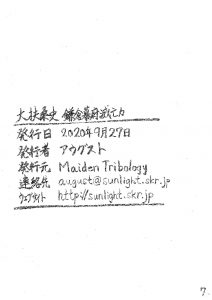 大扶桑史 鎌倉幕府滅亡力
発行日 2020年9月27日
発行者 アウグスト
発行元 Maiden Tribology
連絡先 august@sunlight.skr.jp
ウェブサイト http://sunlight.skr.jp
7